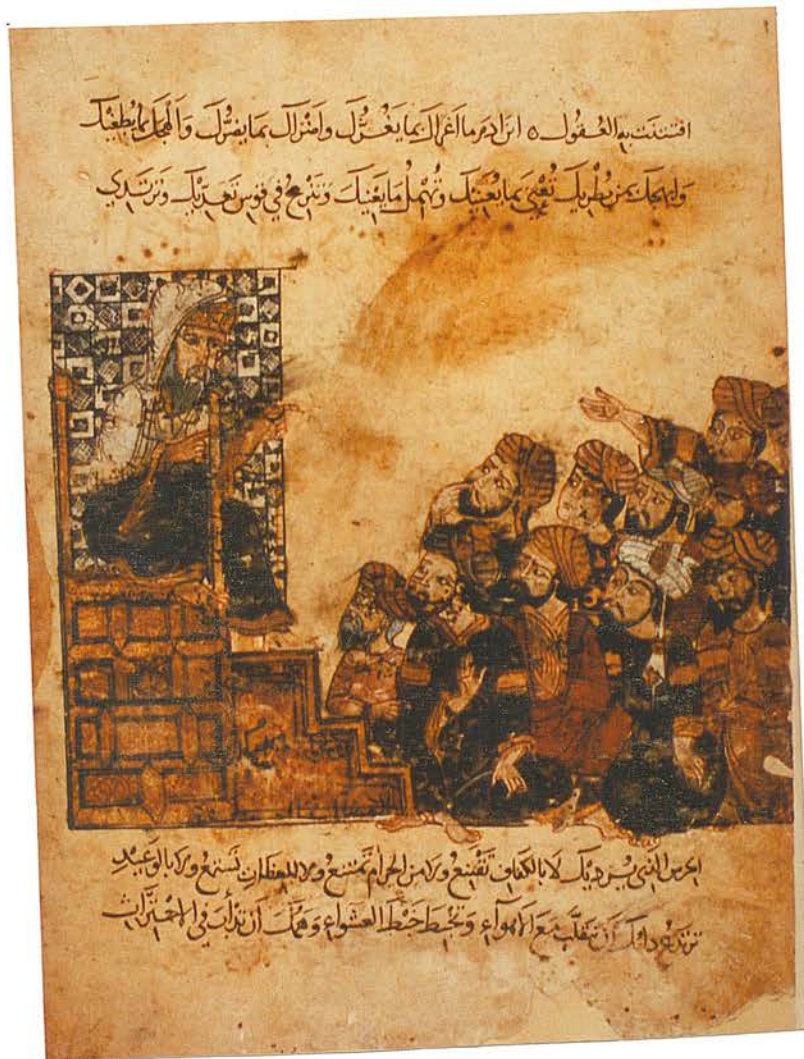 افتتنت به العقول ه ابن ادم ما اغراك بما يغرّك واضراك بما يضرّك وألهجك بما يطغيك
وابهجك بمن يطريك تُعنى بما يُعنّيك وتُهمل ما يعنيك وتنزع في قوس تعدّيك وترتدي
الحرص الذي يرديك لا بالكفاف تقتنع ولا من الحرام تمتنع ولا للعظات تستمع ولا بالوعيد
ترتدع دأبك أن تتقلّب مع الاهوآء وتخبط خَبط العشواء وهمّك أن تدأب في الاحتراث